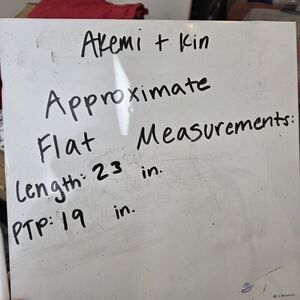 Akemi + Kin
Approximate
Flat Measurements:
Length: 23 in.
PTP: 19 in.